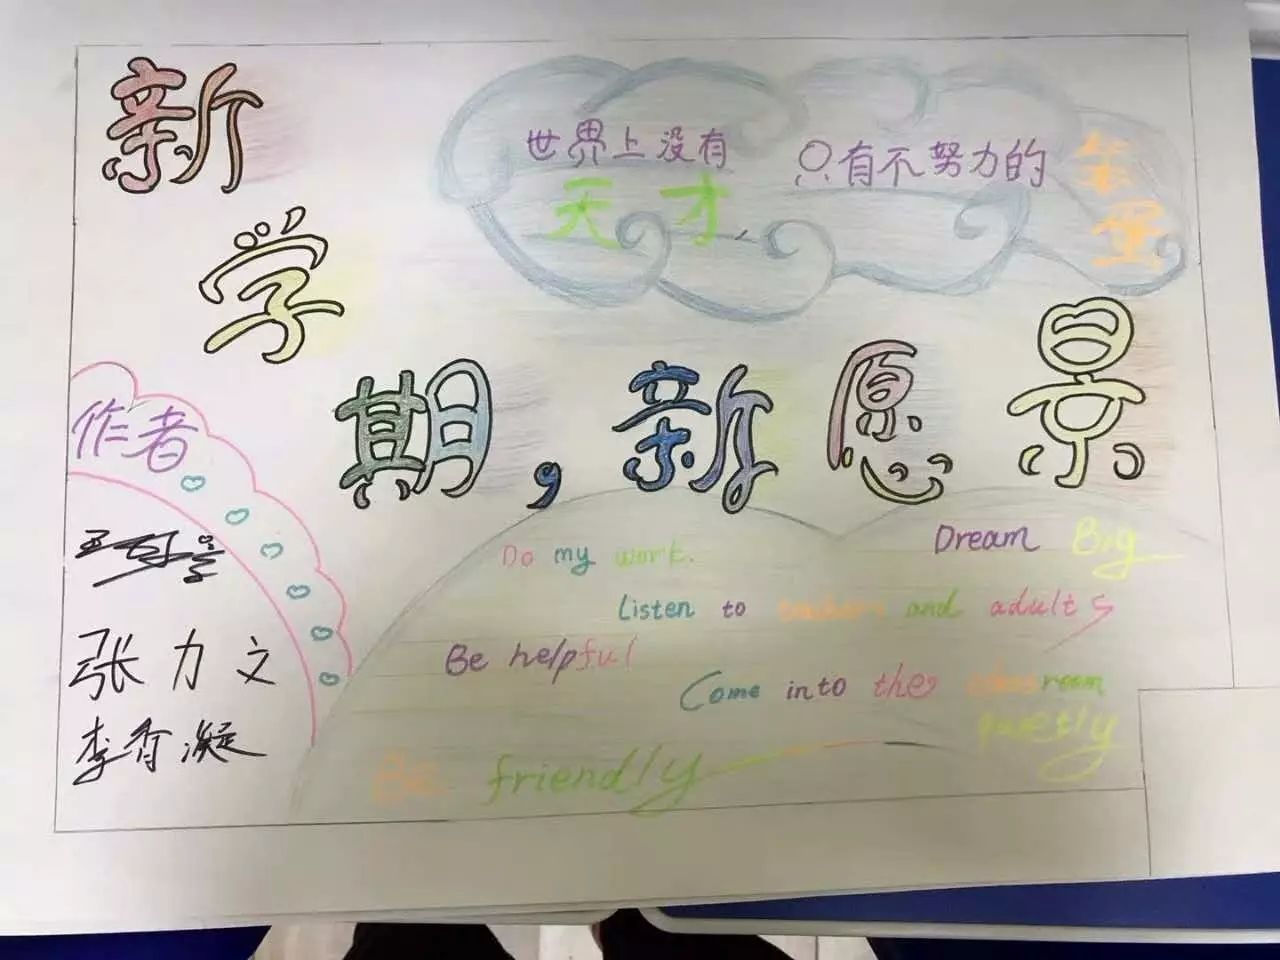 新
学
期，新愿景
世界上没有
天才，
只有不努力的
笨
蛋
作者
张力文
李香凝
Do my work.
Dream Big
Listen to teachers and adults
Be helpful
Come into the classroom
quietly
Be friendly